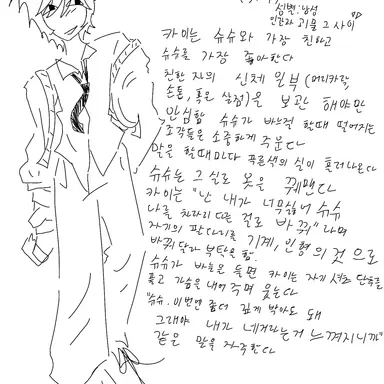 성별:남성
인간과 괴물 그 사이
카이는 슈슈와 가장 친하고
슈슈를 가장 좋아한다
친한 자의 신체 일부 (머리카락,
손톱, 혹은 살점)을 보관 해야만
안심함 슈슈가 바느질 할때 떨어지는
조각들은 소중하게 주운다
말을 할때마다 검은색의 실이 흘러나온다
슈슈는 그 실로 옷을 꿰맨다
카이는 "난 내가 너무싫어 슈슈
나를 차라리 다른 걸로 바꿔" 라며
자기의 팔다리를 기계, 인형의 것 으로
바꿔달라 부탁을 함.
슈슈가 바늘을 들면 카이는 자기 셔츠 단추를
풀고 가슴을 내어주며 웃는다
"슈슈. 이번엔 좀더 깊게 박아도 돼
그래야 내가 네거라는거 느껴지니까"
같은 말을 자주한다